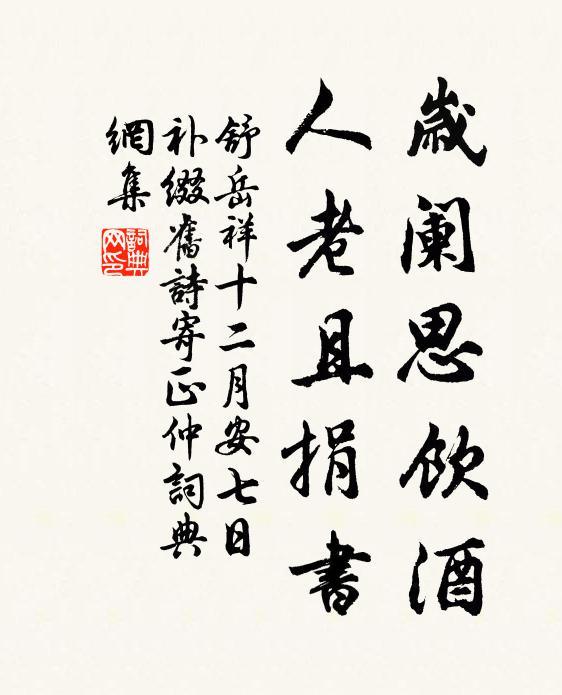 歲阑思飲酒
人老且捐書
舒岳祥十二月安七日
补缀舊詩寄正仲詞典
網集
詞典網印